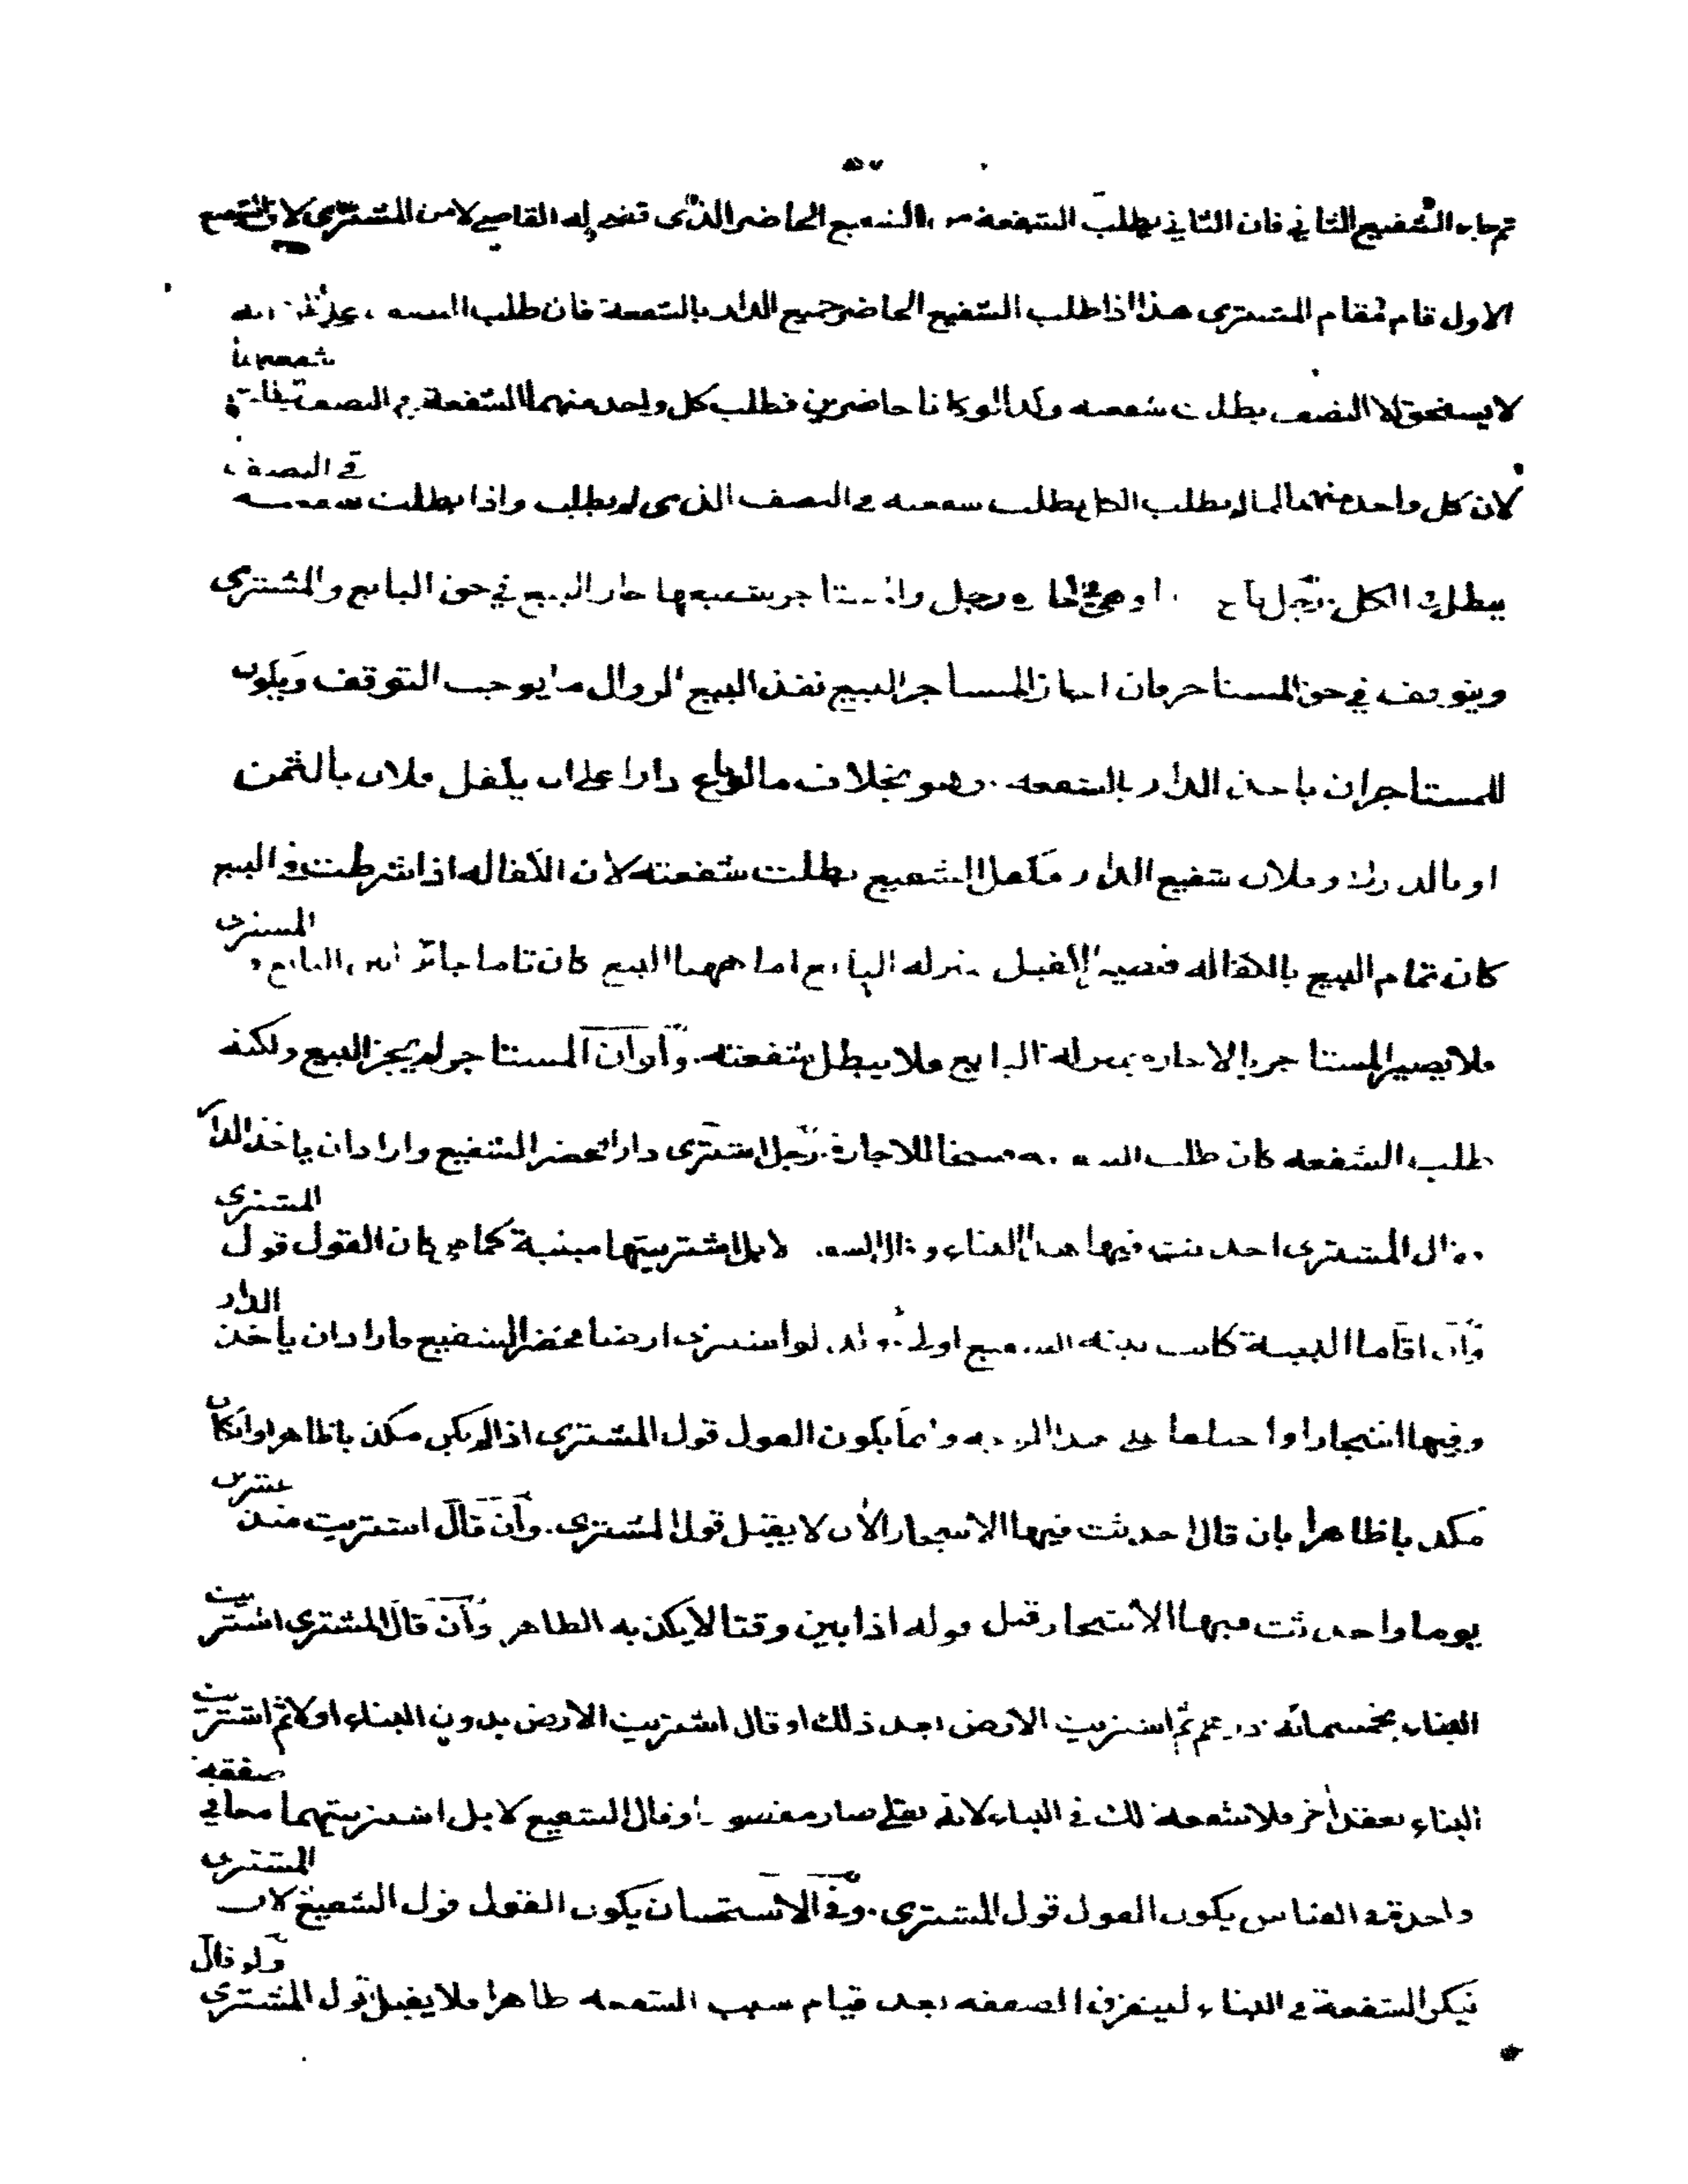 ثم جاء الشفيع الثاني فان الثاني يطلب الشفعة من الشفيع الحاضر الذي قضى له القاضي لا من المشتري لان الشفيع
الاول قام مقام المشترى هذا اذا طلب الشفيع الحاضر جميع الدار بالشفعة فان طلب النصف على ظن انه
لا يستحق الا النصف بطلت شفعته وكذا لو كانا حاضرين فطلب كل واحد منهما الشفعة في النصف بطلت شفعتهما
لان كل واحد منهما لما لم يطلب الكل بطلت شفعته في النصف الذى لم يطلب واذا بطلت شفعته في النصف
بطلت في الكل. رجل باع دارا وهي في اجارة رجل والمستاجر شفيعها جاز البيع في حق البائع والمشترى
ويتوقف في حق المستاجر فان اجاز المستاجر البيع نفذ البيع لزوال ما يوجب التوقف ويكون
للمستاجر ان ياخذ الدار بالشفعة. وهو بخلاف ما لو باع دارا على ان يكفل فلان بالثمن
او بالدرك وفلان شفيع الدار فكفل الشفيع بطلت شفعته لان الكفالة اذا شرطت في البيع
كان تمام البيع بالكفاله فيصير الكفيل بمنزله البائع اما ههنا البيع كان تاما جائزا بين البائع والمشترى
فلا يصير المستاجر بالاجازه بمنزلة البايع فلا يبطل شفعته. ولو ان المستاجر لم يجز البيع ولكنه
طلب الشفعه كان طلب الشفعه فسخا للاجارة. رجل اشترى دارا فحضر الشفيع واراد ان ياخذ الدار
فقال المشترى احدثت فيها هذا البناء وقال الشفيع لا بل اشتريتها مبنية كما هي كان القول قول المشترى
وان اقاما البينة كانت بينه الشفيع اولى. وكذا لو اشترى ارضا فحضر الشفيع فاراد ان ياخذ الدار
وفيها اشجار او اختلفا على هذا الوجه وانما يكون القول قول المشترى اذا لم يكن مكذبا ظاهرا وان كان
مكذبا ظاهرا بان قال احدثت فيها الاشجار الآن لا يقبل قول المشترى. وان قال اشتريت منذ عشرين
يوما واحدثت فيها الاشجار قبل قوله اذا بين وقتا لا يكذبه الظاهر وان قال المشترى اشتريت
البناء بخمسمائه درهم ثم اشتريت الارض بعد ذلك او قال اشتريت الارض بدون البناء اولا ثم اشتريت
البناء بعقد آخر فلا شفعة لك في البناء لانه نقلى صار مقسو او قال الشفيع لا بل اشتريتهما معا في صفقة
واحدة في القياس يكون القول قول المشترى. وفي الاستحسان يكون القول قول الشفيع لان المشترى
ينكر الشفعة في البناء لتفرق الصفقه بعد قيام سبب الشفعه ظاهرا فلا يقبل قول المشترى ولو قال